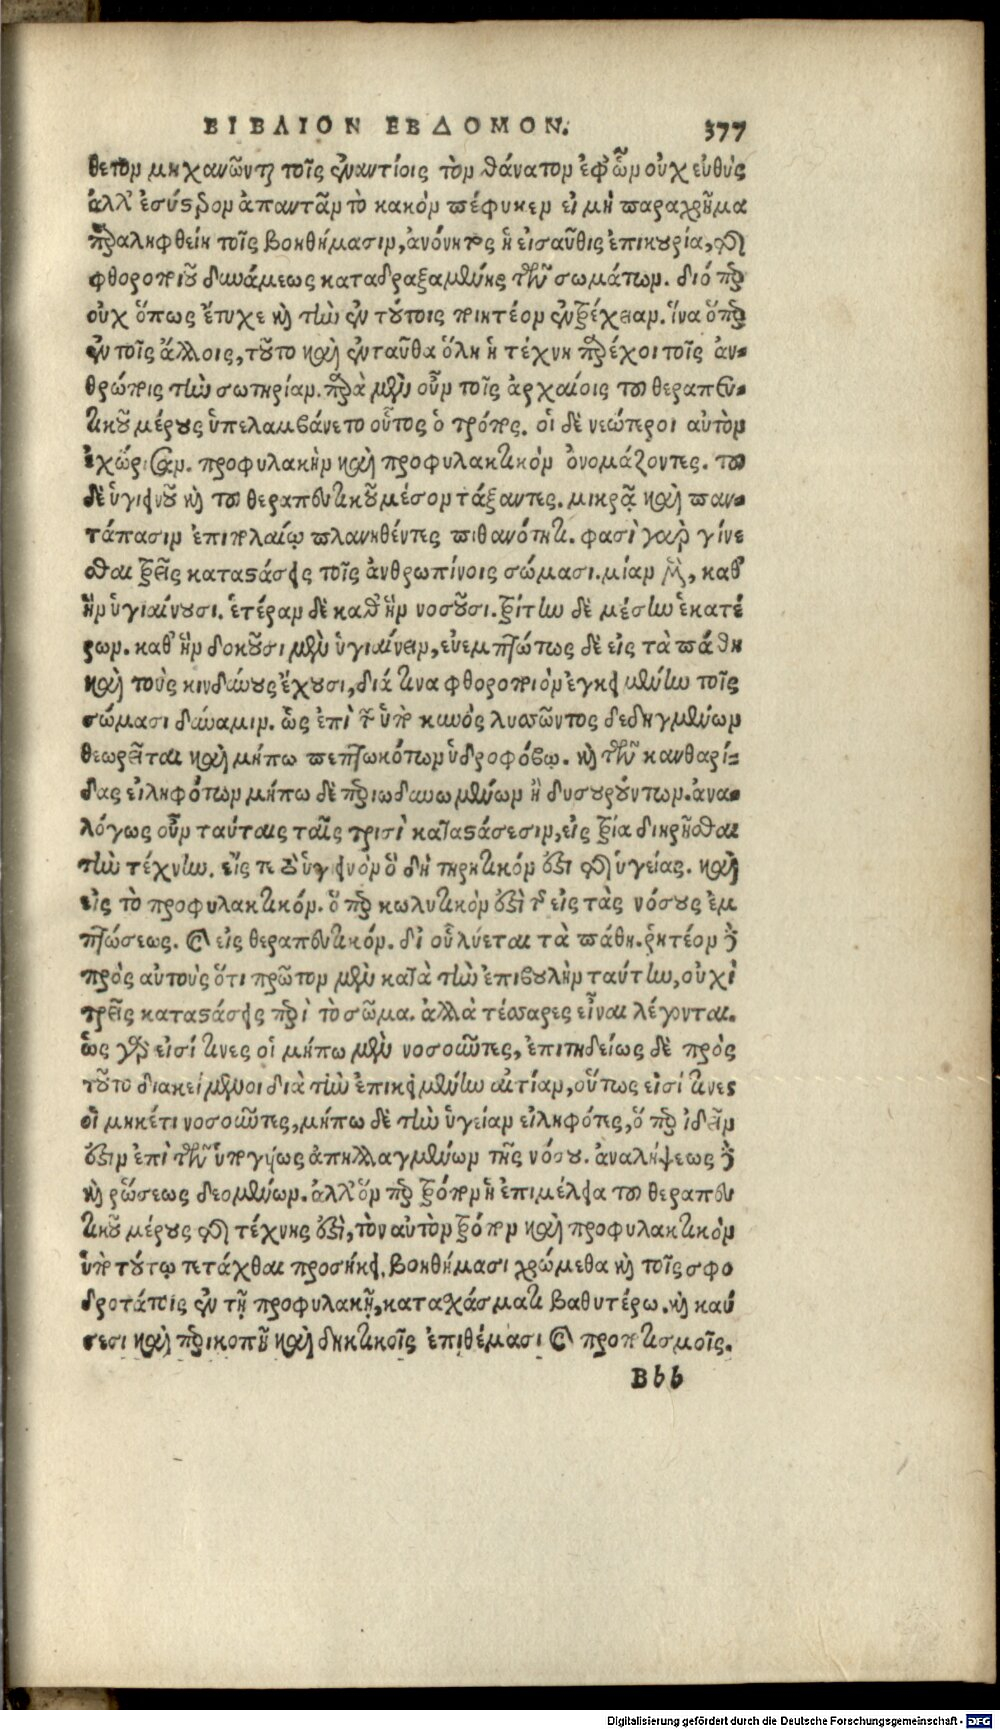 ΒΙΒΛΙΟΝ ΕΒΔΟΜΟΝ. 377
θετον μηχανῶνται τοῖς ἐναντίοις τὸν θάνατον ἐφ' ὧν οὐχ εὐθὺς
ἀλλ' ἐσύστερον ἀπαντᾶν τὸ κακὸν πέφυκεν εἰ μὴ παραχρῆμα
προαληφθείη τοῖς βοηθήμασιν, ἀνόνητος ἡ εἰσαῦθις ἐπικουρία, τῆς
φθοροποιοῦ δυνάμεως καταδραξαμένης τῶν σωμάτων. διόπερ
οὐχ ὅπως ἔτυχε καὶ τὴν ἐν τούτοις πιστέον ἐντρέχειαν. ἵνα ὅπερ
ἐν τοῖς ἄλλοις, τοῦτο καὶ ἐνταῦθα ὅλη ἡ τέχνη παρέχοι τοῖς ἀν-
θρώποις τὴν σωτηρίαν. παρὰ μὲν οὖν τοῖς ἀρχαίοις τοῦ θεραπευ-
τικοῦ μέρους ὑπελαμβάνετο οὗτος ὁ τρόπος. οἱ δὲ νεώτεροι αὐτὸν
ἐχώρισαν. προφυλακὴν καὶ προφυλακτικὸν ὀνομάζοντες. τοῦ
δὲ ὑγιεινοῦ καὶ τοῦ θεραπευτικοῦ μέσον τάξαντες. μικρᾷ καὶ παν-
τάπασιν ἐπιπολαίῳ πλανηθέντες πιθανότητι. φασὶ γὰρ γίνε
σθαι τρεῖς καταστάσεις τοῖς ἀνθρωπίνοις σώμασι. μίαν μὲν, καθ'
ἣν ὑγιαίνουσι. ἑτέραν δὲ καθ' ἣν νοσοῦσι. τρίτην δὲ μέσην ἑκατέ
ρων. καθ' ἣν δοκοῦσι μὲν ὑγιαίνειν, εὐεμπτώτως δὲ εἰς τὰ πάθη
καὶ τοὺς κινδύνους ἔχουσι, διά τινα φθοροποιὸν ἐγκειμένην τοῖς
σώμασι δύναμιν. ὡς ἐπὶ τῶν ὑπὸ κυνὸς λυσσῶντος δεδηγμένων
θεωρεῖται καὶ μήπω πεπτωκότων ὑδροφόβῳ. καὶ τῶν κανθαρί-
δας εἰληφότων μήπω δὲ περιωδυνωμένων ἢ δυσουρούντων. ἀνα-
λόγως οὖν ταύταις ταῖς τρισὶ καταστάσεσιν, εἰς τρία διῃρῆσθαι
τὴν τέχνην. εἴς τε τὸ ὑγιεινὸν ὃ δὴ τηρητικόν ἐστι τῆς ὑγείας. καὶ
εἰς τὸ προφυλακτικόν. ὅπερ κωλυτικόν ἐστὶ τῆς εἰς τὰς νόσους ἐμ
πτώσεως. καὶ εἰς θεραπευτικόν. δι' οὗ λύεται τὰ πάθη. ῥητέον δὲ
πρὸς αὐτοὺς ὅτι πρῶτον μὲν κατὰ τὴν ἐπιβουλὴν ταύτην, οὐχὶ
τρεῖς καταστάσεις περὶ τὸ σῶμα. ἀλλὰ τέσσαρες εἶναι λέγονται.
ὡς γάρ εἰσί τινες οἱ μήπω μὲν νοσοῦντες, ἐπιτηδείως δὲ πρὸς
τοῦτο διακείμενοι διὰ τὴν ἐπικειμένην αἰτίαν, οὕτως εἰσί τινες
οἳ μηκέτι νοσοῦντες, μήπω δὲ τὴν ὑγείαν εἰληφότες, ὅπερ ἰδεῖν
ἔστιν ἐπὶ τῶν ὑπογύως ἀπηλλαγμένων τῆς νόσου. ἀναλήψεως δὲ
καὶ ῥώσεως δεομένων. ἀλλ' ὅνπερ τρόπον ἡ ἐπιμέλεια τοῦ θεραπευ
τικοῦ μέρους τῆς τέχνης ἐστὶ, τὸν αὐτὸν τρόπον καὶ προφυλακτικὸν
ὑπὸ τούτῳ τετάχθαι προσήκει. βοηθήμασι χρώμεθα καὶ τοῖς σφο
δροτάτοις ἐν τῇ προφυλακῇ, καταχάσματι βαθυτέρῳ. καὶ καύ
σεσι καὶ περικοπῇ καὶ δηκτικοῖς ἐπιθέμασι καὶ προποτισμοῖς.
Bbb
Digitalisierung gefördert durch die Deutsche Forschungsgemeinschaft - DFG